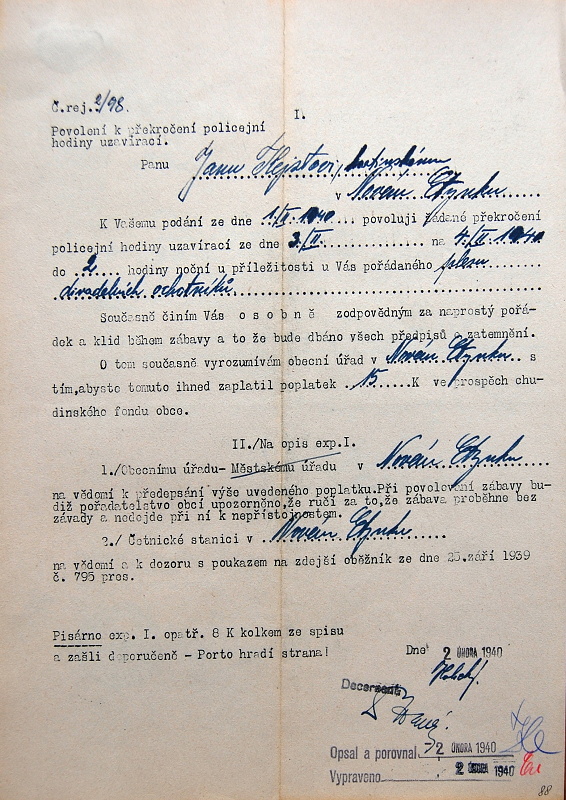 Č.rej. 2/98.
I.
Povolení k překročení policejní
hodiny uzavírací.
Panu Janu Hejštovi, hostinskému
v Novém Etynku
K Vašemu podání ze dne 1./II 1940 povoluji žádané překročení
policejní hodiny uzavírací ze dne 3./II. na 4./II. 1940
do 2 hodiny noční u příležitosti u Vás pořádaného plesu
divadelních ochotníků.
Současně činím Vás osobně zodpovědným za naprostý pořá-
dek a klid během zábavy a to že bude dbáno všech předpisů o zatemnění.
O tom současně vyrozumívám obecní úřad v Novém Etynku s
tím,abyste tomuto ihned zaplatil poplatek 15 K ve prospěch chu-
dinského fondu obce.
II./Na opis exp.I.
1./Obecnímu úřadu- Městskému úřadu v Novém Etynku
na vědomí k předepsání výše uvedeného poplatku.Při povolování zábavy bu-
diž pořadatelstvo obcí upozorněno,že ručí za to,že zábava proběhne bez
závady a nedojde při ní k nepřístojnostem.
2./ Četnické stanici v Novém Etynku
na vědomí a k dozoru s poukazem na zdejší oběžník ze dne 25.září 1939
č. 795 pres.
Pisárno exp. I. opatř. 8 K kolkem ze spisu
a zašli doporučeně - Porto hradí strana!
Dne 2 ÚNORA 1940
Decernent:
Opsal a porovnal 2 ÚNORA 1940
Vypraveno 2 ÚNORA 1940
88